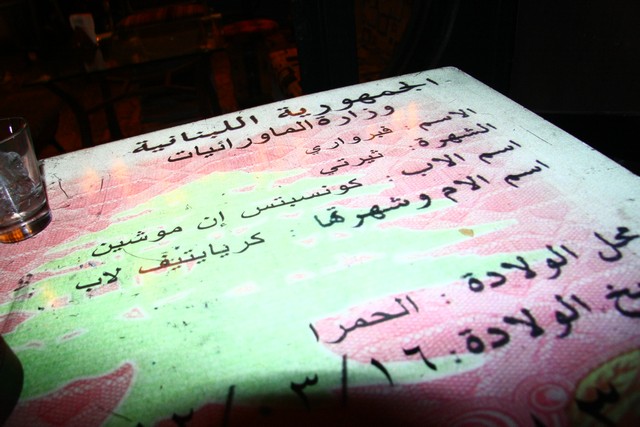 الجمهورية اللبنانية
وزارة الماورانيات
الاسم : فبرواري
الشهرة : ثيرتي
اسم الاب : كونسبتس إن موشين
اسم الام وشهرتها : كريايتيف لاب
محل الولادة : الحمرا
الولادة : ١٦ / ٠٣ /